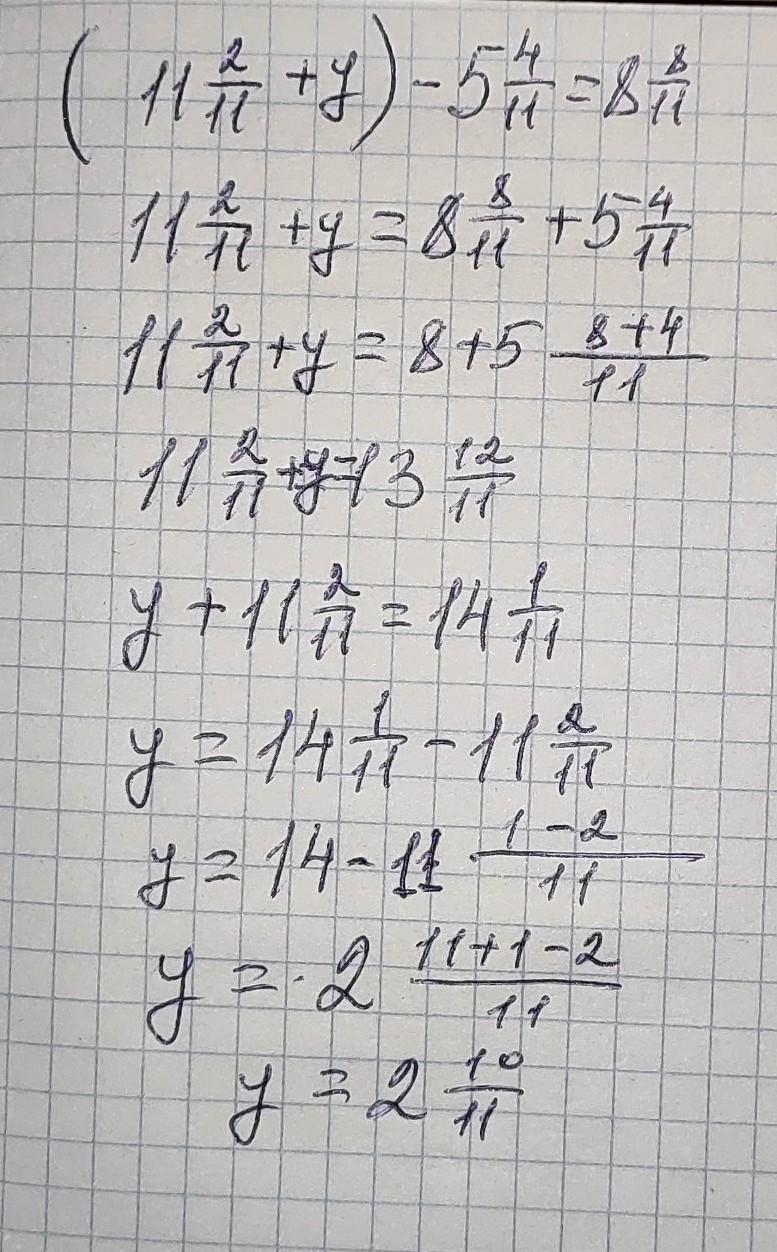 (11 2/11 + y) - 5 4/11 = 8 8/11
11 2/11 + y = 8 8/11 + 5 4/11
11 2/11 + y = 8 + 5 8+4/11
11 2/11 + y = 13 12/11
y + 11 2/11 = 14 1/11
y = 14 1/11 - 11 2/11
y = 14 - 11 1-2/11
y = 2 11+1-2/11
y = 2 10/11